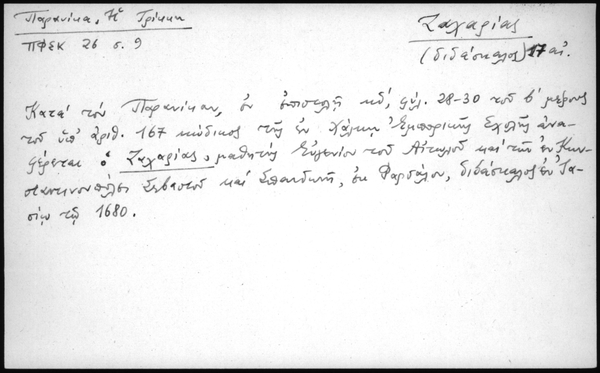 Παρανίκα, Ἡ Τρίκκη
ΠΦΕΚ 26 σ. 9
Ζαχαρίας
(διδάσκαλος) 17 αἰ.
Κατά τόν Παρανίκαν, ἐν ἐπιστολῇ κδ', φύλ. 28-30 τοῦ β' μέρους
τοῦ ὑπ' ἀριθ. 167 κώδικος τῆς ἐν Χάλκῃ Ἐμπορικῆς Σχολῆς ἀνα-
φέρεται ὁ Ζαχαρίας, μαθητής Εὐγενίου τοῦ Αἰτωλοῦ καί τῶν ἐν Κων-
σταντινουπόλει Σεβαστοῦ καί Σπαντωνῆ, ἐκ Φαρσάλων, διδάσκαλος ἐν Ἰα-
σίῳ τῷ 1680.